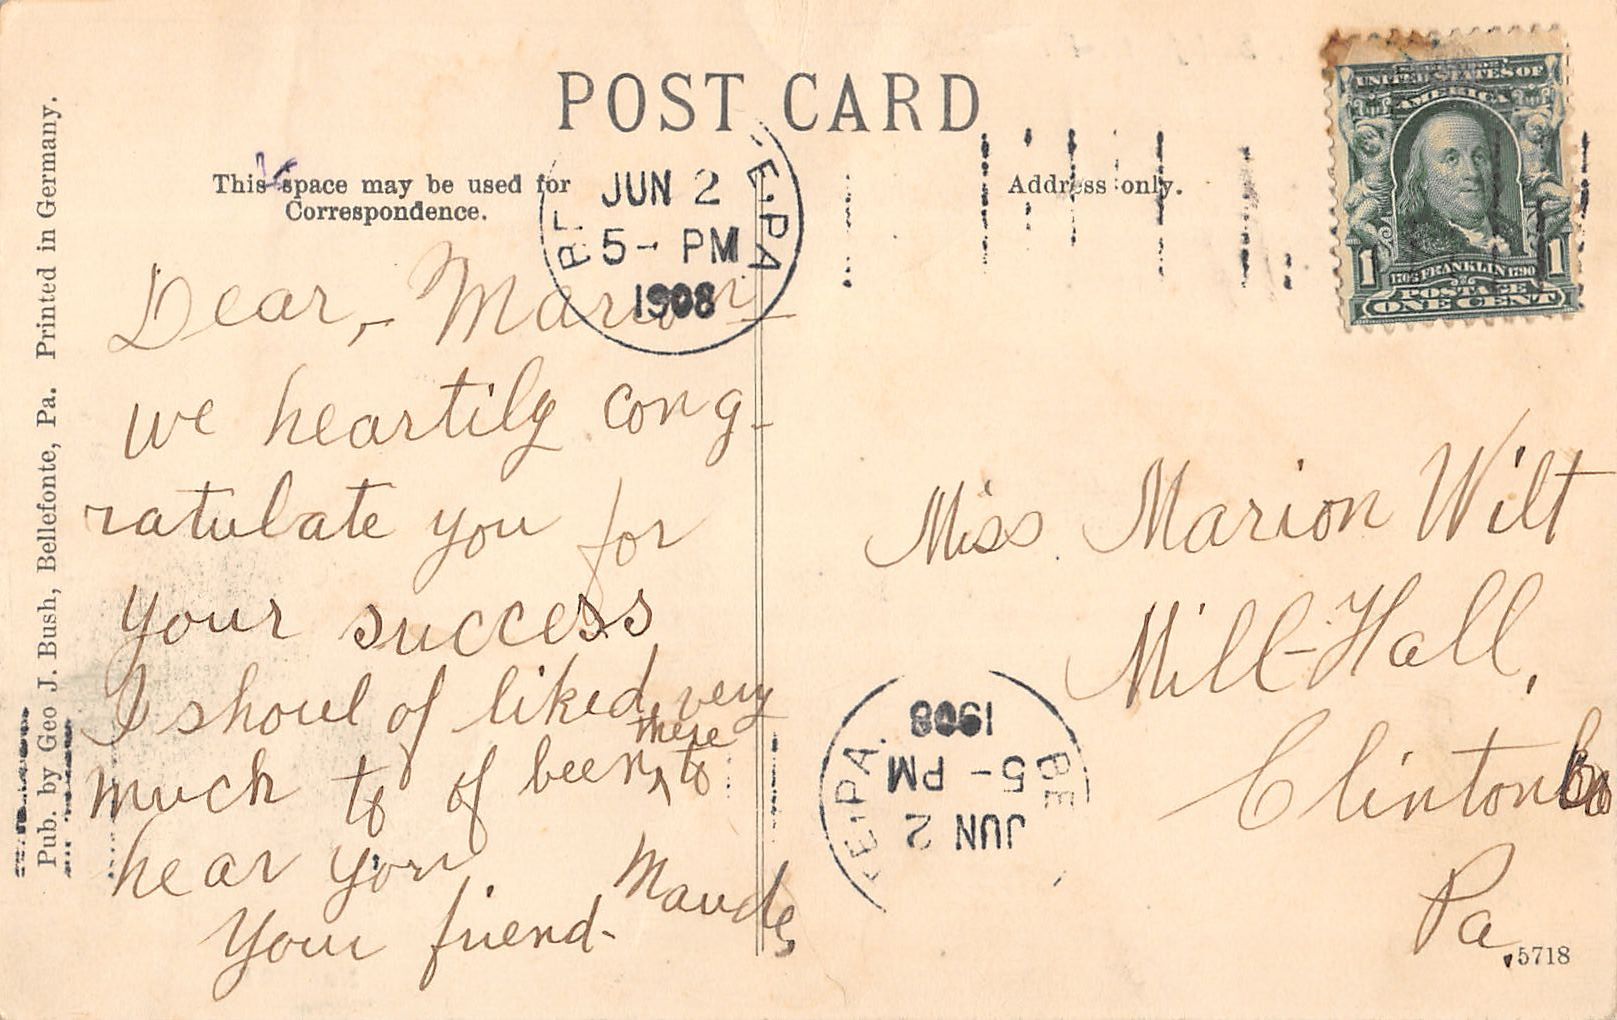 POST CARD
This space may be used for
Correspondence.
Address only.
JUN 2
5- PM
1908
E.PA
UNITED STATES OF
AMERICA
1 1
1706 FRANKLIN 1790
POSTAGE
ONE CENT
Dear,- Marion
we heartily cong-
ratulate you for
your success
I shoul of liked very
much to of been there to
hear you
Your friend- Maude
Miss Marion Wilt
Mill-Hall,
Clinton Co
Pa.
BE E.PA.
JUN 2
5- PM
1908
5718
Pub. by Geo J. Bush, Bellefonte, Pa. Printed in Germany.